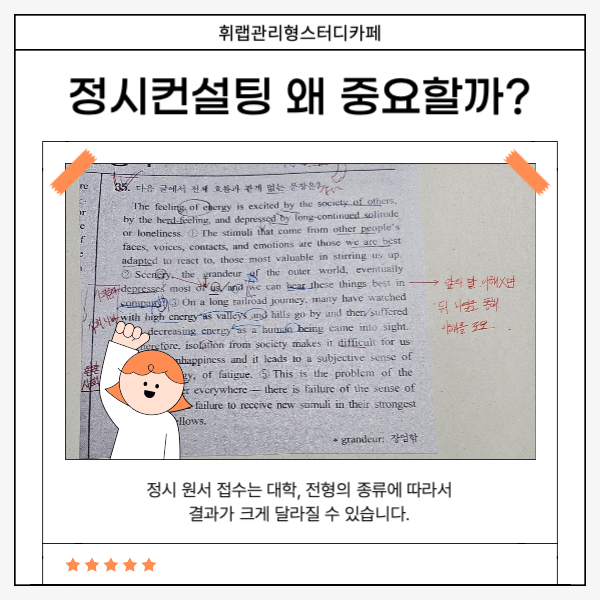 휘랩관리형스터디카페
정시컨설팅 왜 중요할까?
35. 다음 글에서 전체 흐름과 관계 없는 문장은?
The feeling of energy is excited by the society of others,
by the herd-feeling, and depressed by long-continued solitude
or loneliness. ① The stimuli that come from other people's
faces, voices, contacts, and emotions are those we are best
adapted to react to, those most valuable in stirring us up.
② Scenery, the grandeur of the outer world, eventually
depresses most of us, and we can bear these things best in
company. ③ On a long railroad journey, many have watched
with high energy as valleys and hills go by and then suffered
decreasing energy as a human being came into sight.
Therefore, isolation from society makes it difficult for us
unhappiness and it leads to a subjective sense of
of fatigue. ⑤ This is the problem of the
everywhere — there is failure of the sense of
failure to receive new stimuli in their strongest
* grandeur: 장엄함
정시 원서 접수는 대학, 전형의 종류에 따라서
결과가 크게 달라질 수 있습니다.